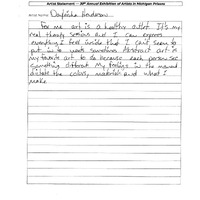 Artist Statement - 30th Annual Exhibition of Artists in Michigan Prisons
Artist Name: Henderson
For me art is a healthy outlet. It's my
real therapy serious and I can express
everything I feel inside that I can't seem to
put in to words sometimes. Abstract art is
my favorite art to do because each person see
something different. My feelings in the moment
dictate the colors, materials and what I
make.